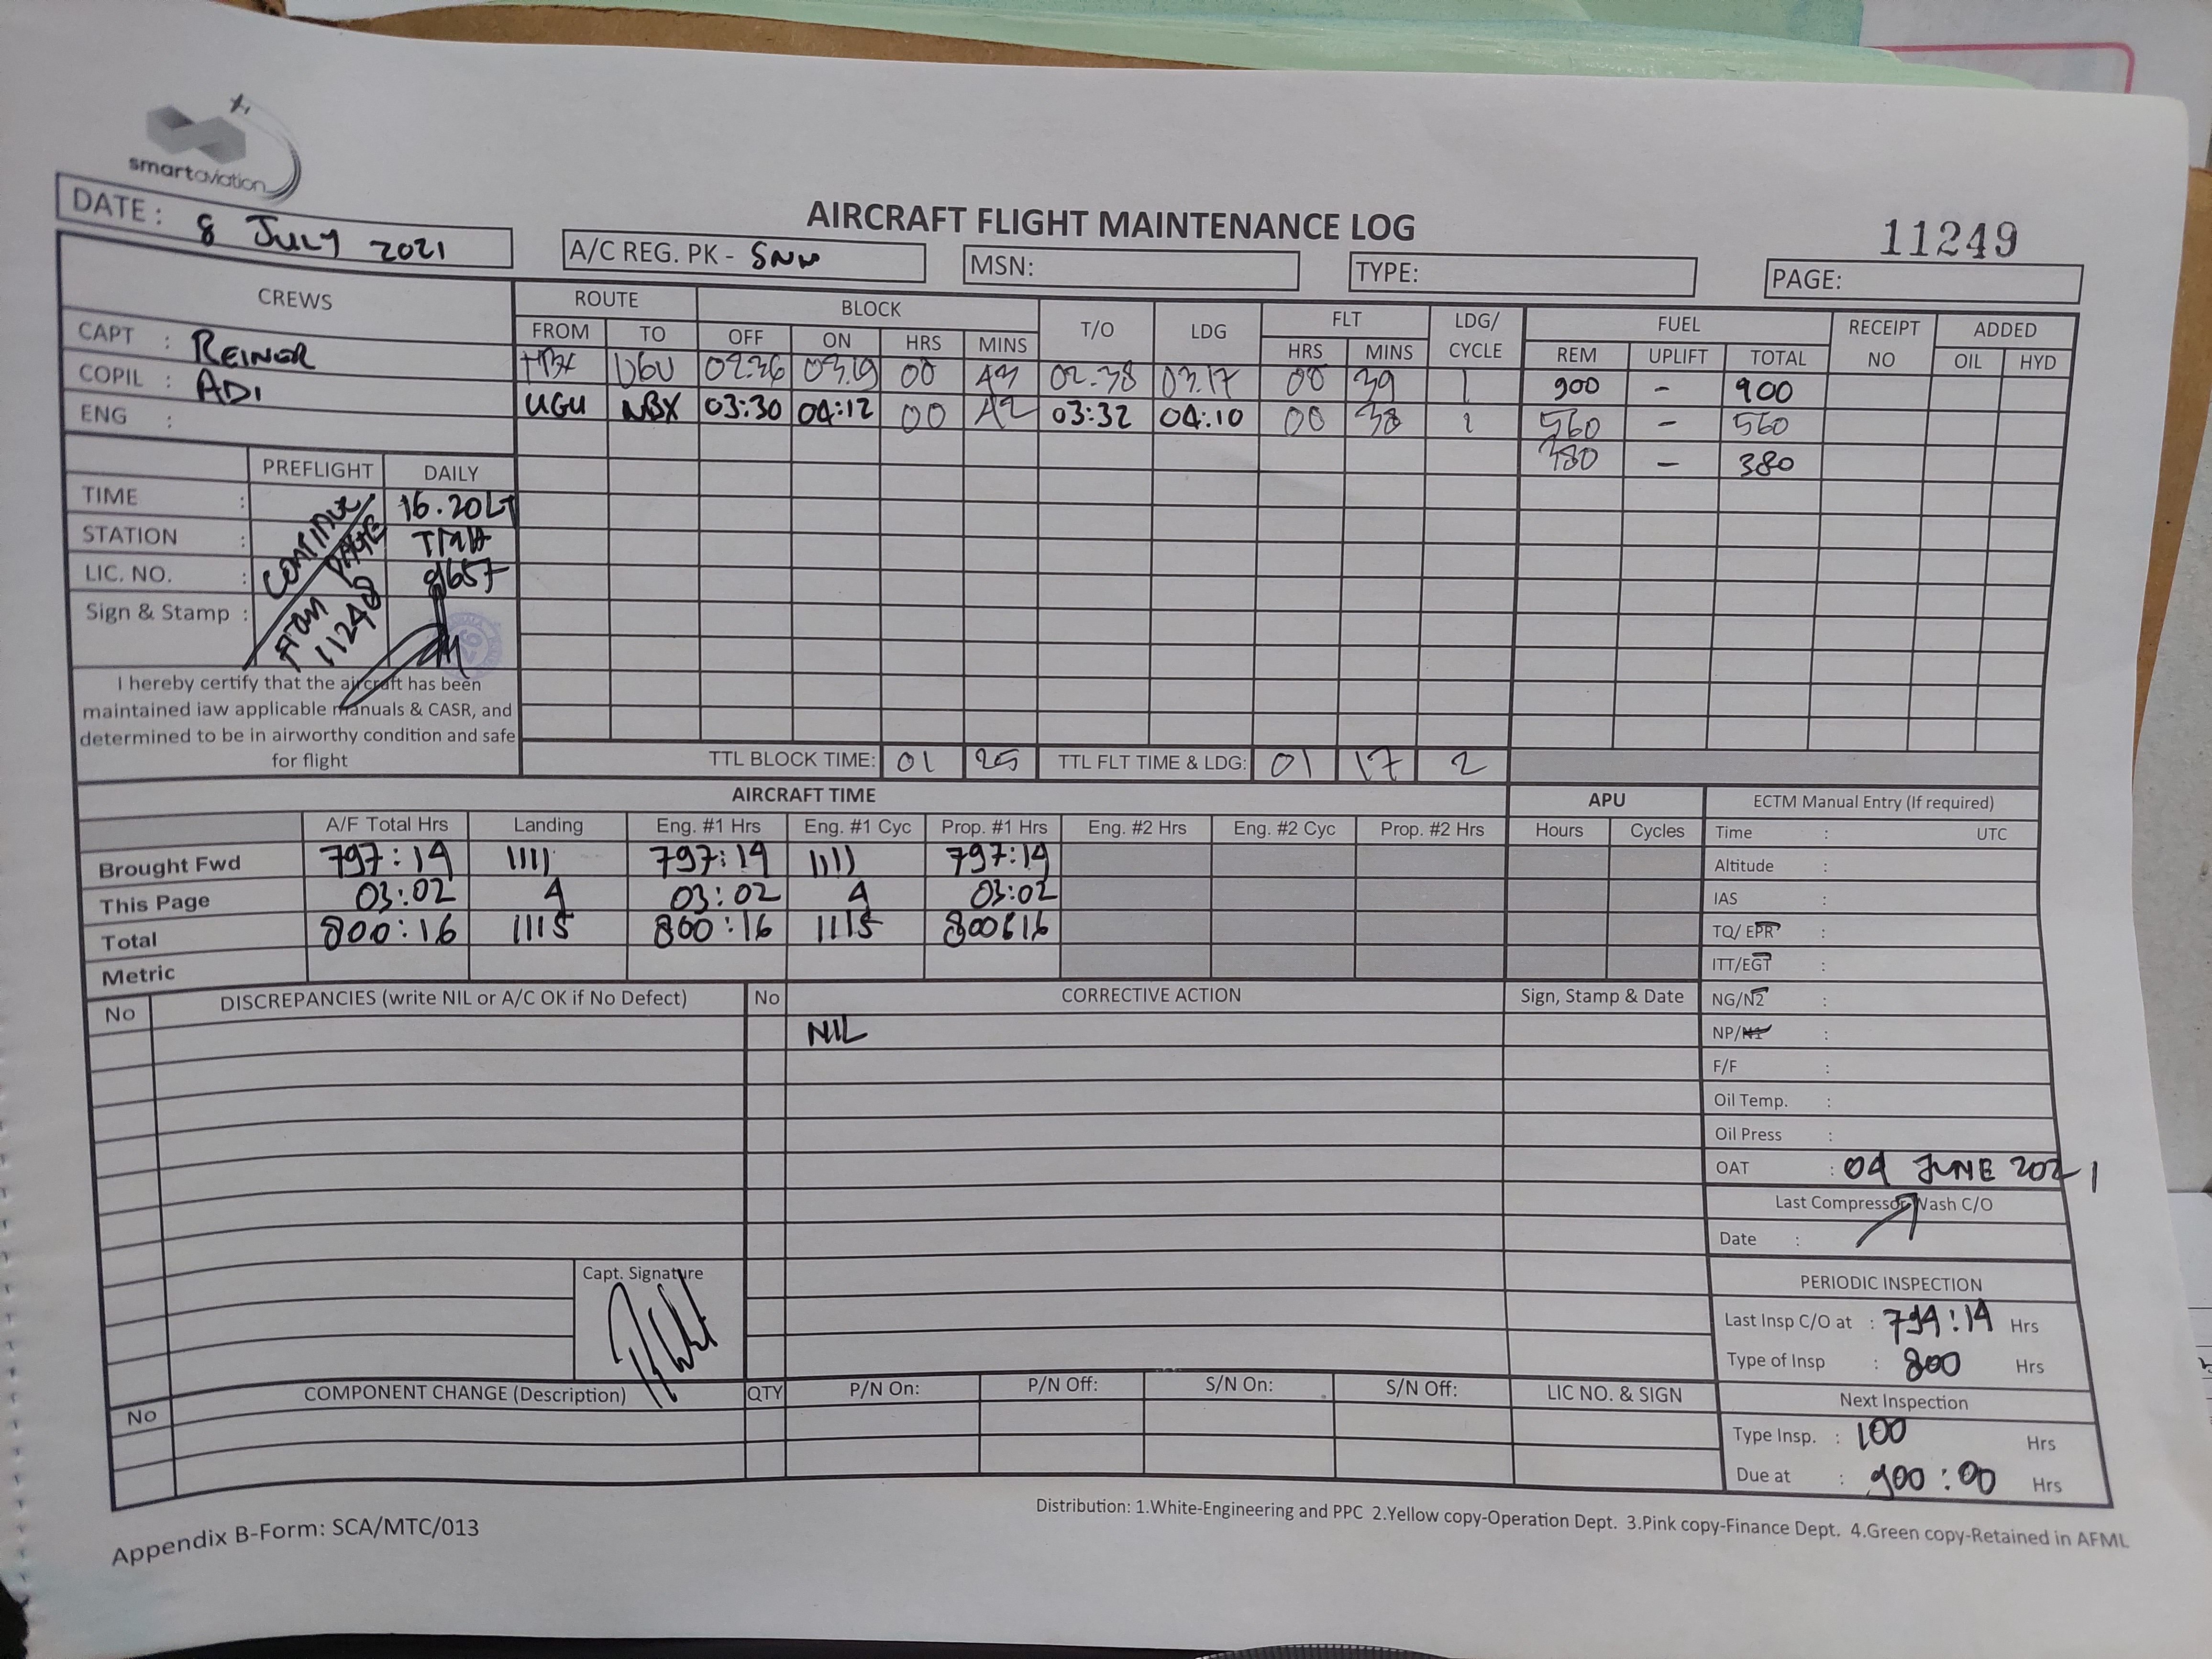 smartaviation
AIRCRAFT FLIGHT MAINTENANCE LOG
11249
DATE : 8 JULY 2021
A/C REG. PK - SNN
MSN:
TYPE:
PAGE:
CREWS
CAPT : REINER
COPIL : ADI
ENG :
ROUTE BLOCK T/O LDG FLT LDG/ CYCLE FUEL RECEIPT NO ADDED
FROM TO OFF ON HRS MINS HRS MINS REM UPLIFT TOTAL OIL HYD
UGU 02:36 03.19 00 43 02.38 03.17 00 39 1 900 - 900
UGU NBX 03:30 04:12 00 42 03:32 04:10 00 38 1 560 - 560
380 - 380
PREFLIGHT DAILY
TIME : 16.20LT
STATION :
LIC. NO. : 8657
Sign & Stamp :
CONTINUE PAGE
FROM 11248
I hereby certify that the aircraft has been
maintained iaw applicable manuals & CASR, and
determined to be in airworthy condition and safe
for flight
TTL BLOCK TIME: 01 25 TTL FLT TIME & LDG: 01 17 2
AIRCRAFT TIME
A/F Total Hrs Landing Eng. #1 Hrs Eng. #1 Cyc Prop. #1 Hrs Eng. #2 Hrs Eng. #2 Cyc Prop. #2 Hrs
Brought Fwd 797:14 1111 797:14 1111 797:14
This Page 03:02 4 03:02 4 03:02
Total 800:16 1115 800:16 1115 800:16
Metric
APU
Hours Cycles
ECTM Manual Entry (If required)
Time : UTC
Altitude :
IAS :
TQ/ EPR :
ITT/EGT :
NG/N2 :
NP/N1 :
F/F :
Oil Temp. :
Oil Press :
OAT : 04 JUNE 2021
Last Compressor Wash C/O
Date :
No DISCREPANCIES (write NIL or A/C OK if No Defect) No CORRECTIVE ACTION Sign, Stamp & Date
NIL
Capt. Signature
PERIODIC INSPECTION
Last Insp C/O at : 794:14 Hrs
Type of Insp : 800 Hrs
Next Inspection
Type Insp. : 100 Hrs
Due at : 900:00 Hrs
No COMPONENT CHANGE (Description) QTY P/N On: P/N Off: S/N On: S/N Off: LIC NO. & SIGN
Distribution: 1.White-Engineering and PPC 2.Yellow copy-Operation Dept. 3.Pink copy-Finance Dept. 4.Green copy-Retained in AFML
Appendix B-Form: SCA/MTC/013